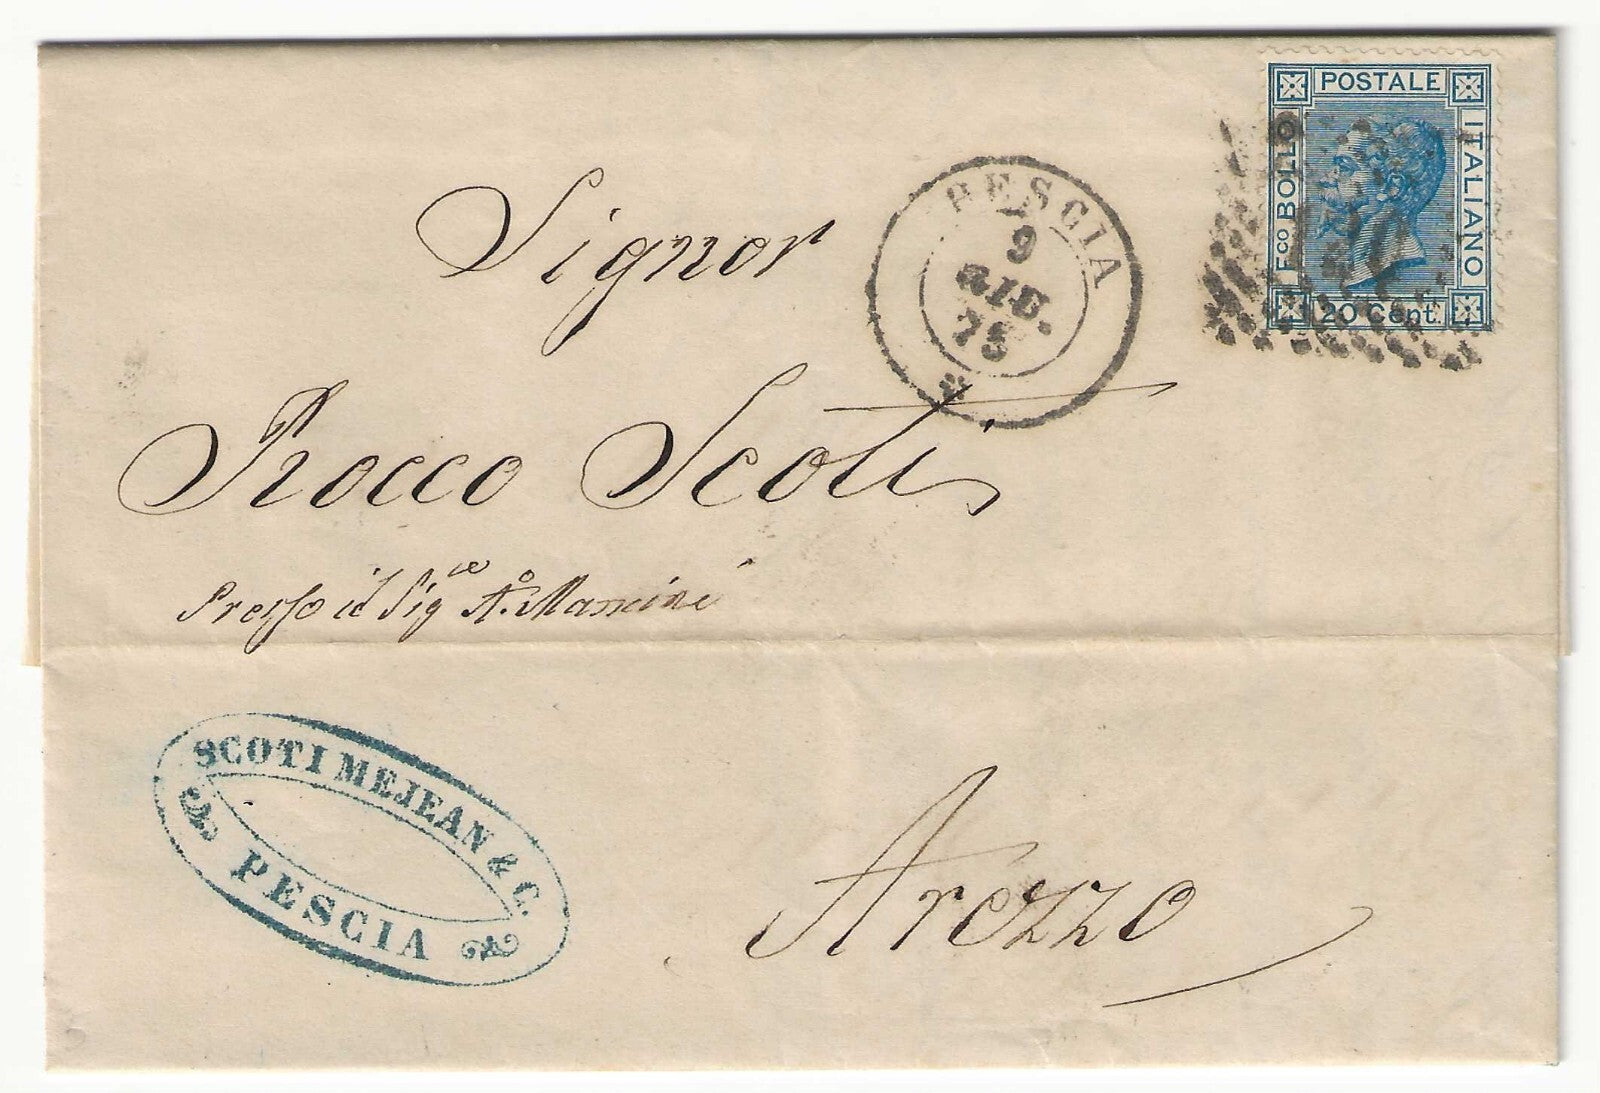 POSTALE
Fco BOLLO
ITALIANO
20 Cent.
PESCIA
9
GIU.
75
Signor
Rocco Scoti
Presso il Sigre Ao. Mancini
SCOTI MEJEAN & C.
PESCIA
Arezzo